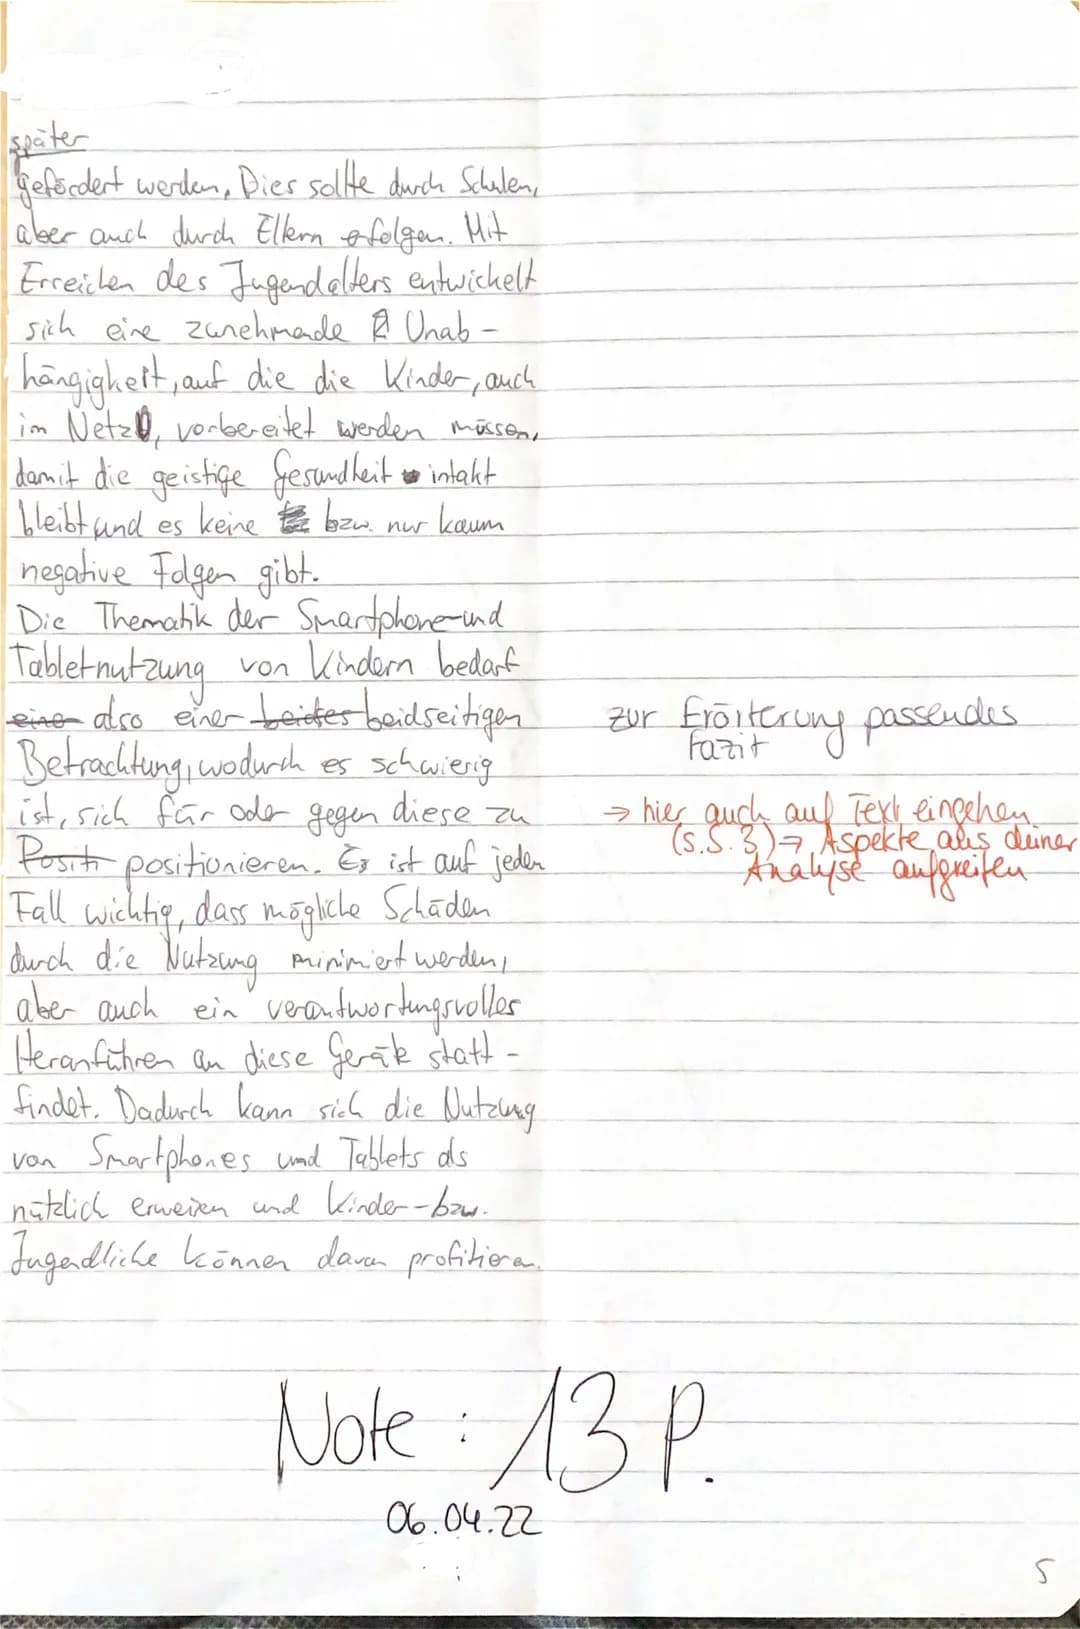 später
gefördert werden. Dies sollte durch Schulen,
aber auch durch Eltern erfolgen. Mit
Erreichen des Jugendalters entwickelt
sich eine zunehmende Unab-
hängigkeit, auf die die Kinder, auch
im Netz, vorbereitet werden müssen,
damit die geistige Gesundheit intakt
bleibt und es keine bzw. nur kaum
negative Folgen gibt.
Die Thematik der Smartphone-und
Tabletnutzung von Kindern bedarf
eine also einer beides beidseitigen
zur Erörterung passendes
Fazit
Betrachtung, wodurch es schwierig
ist, sich für oder gegen diese zu
→ hier auch auf Text eingehen
(s.S. 3) → Aspekte aus deiner
Analyse aufgreifen
Positi positionieren. Es ist auf jeden
Fall wichtig, dass mögliche Schäden
durch die Nutzung minimiert werden,
aber auch ein verantwortungsvolles
Heranführen an diese Geräte statt-
findet. Dadurch kann sich die Nutzung
von Smartphones und Tablets als
nützlich erweisen und Kinder-bzw.
Jugendliche können davon profitieren.
Note: 13 P.
06.04.22
5